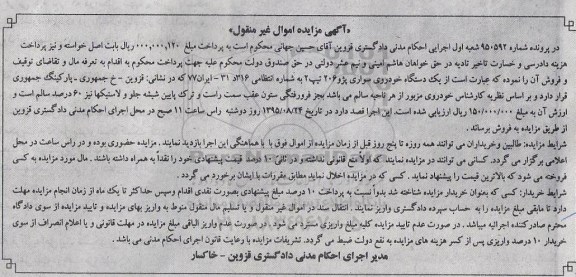 «آگهی مزایده اموال غیر منقول»
در پرونده شماره ۹۵۰۵۹۲ شعبه اول اجرایی احکام مدنی دادگستری قزوین آقای حسین جهانی محکوم است به پرداخت مبلغ ۱۲۰,۰۰۰,۰۰۰ ریال بابت اصل خواسته و نیز پرداخت
هزینه دادرسی و خسارت تاخیر تادیه در حق خواهان هاشم امینی و نیم عشر دولتی در حق صندوق دولت محکوم علیه جهت پرداخت محکوم به اقدام به تعرفه مال و تقاضای توقیف
و فروش آن را نموده که عبارت است از یک دستگاه خودروی سواری پژو ۲۰۶ تیپ ۲ به شماره انتظامی ۳۱۶د۳۱ - ایران۷۷ که در نشانی: قزوین - خ جمهوری - پارکینگ جمهوری
قرار دارد و بر اساس نظریه کارشناس خودروی مزبور از هر ناحیه سالم می باشد بجز فرورفتگی ستون عقب سمت راست و ترک پایین شیشه جلو و لاستیکها نیز ۶۰ درصد سالم است و
ارزش آن به مبلغ ۱۵۰/۰۰۰/۰۰۰ ریال ارزیابی شده است. این اجرا قصد دارد در تاریخ ۱۳۹۵/۰۸/۲۴ روز دوشنبه راس ساعت ۱۱ صبح در محل اجرای احکام مدنی دادگستری قزوین
از طریق مزایده به فروش برساند.
شرایط مزایده: طالبین وخریداران می توانند همه روزه تا پنج روز قبل از زمان مزایده از اموال فوق با هماهنگی این اجرا بازدید نمایند. مزایده حضوری بوده و در راس ساعت در محل
اعلامی برگزار می گردد. کسانی می توانند در مزایده شرکت نمایند، که اولاً منع قانونی نداشته و در ثانی ۱۰ درصد قیمت پیشنهادی خود را نقداً به همراه داشته باشند. مال مورد مزایده به کسی
فروخته می شود که بالاترین قیمت را پیشنهاد نماید. کسی که در مزایده اخلال نماید مطابق مقررات با ایشان برخورد می گردد.
شرایط خریدار: کسی که بعنوان خریدار مزایده شناخته شد بدواً نسبت به پرداخت ۱۰ درصد مبلغ پیشنهادی بصورت نقدی اقدام وسپس حداکثر تا یک ماه از زمان انجام مزایده مهلت
دارد تا مابقی مبلغ مزایده را به حساب سپرده دادگستری واریز نمایند. انتقال سند در اموال غیر منقول و یا تسلیم مال منقول منوط به واریز بهای مزایده و تایید مزایده از سوی دادگاه
محترم صادرکننده اجرائیه میباشد. در صورت عدم تایید مزایده کلیه مبلغ واریزی مسترد می شود. در صورت عدم واریز الباقی مبلغ مزایده در مهلت قانونی و یا اعلام انصراف از سوی
خریدار ۱۰ درصد واریزی پس از کسر هزینه های مزایده به نفع دولت ضبط می گردد. تشریفات مزایده با رعایت قانون اجرای احکام مدنی می باشد.
مدیر اجرای احکام مدنی دادگستری قزوین - خاکسار